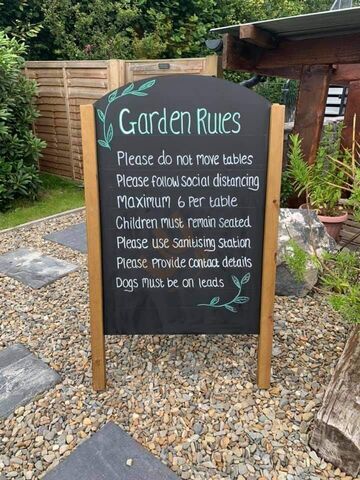 Garden Rules
Please do not move tables
Please follow social distancing
Maximum 6 per table
Children must remain seated
Please use sanitising station
Please provide contact details
Dogs must be on leads